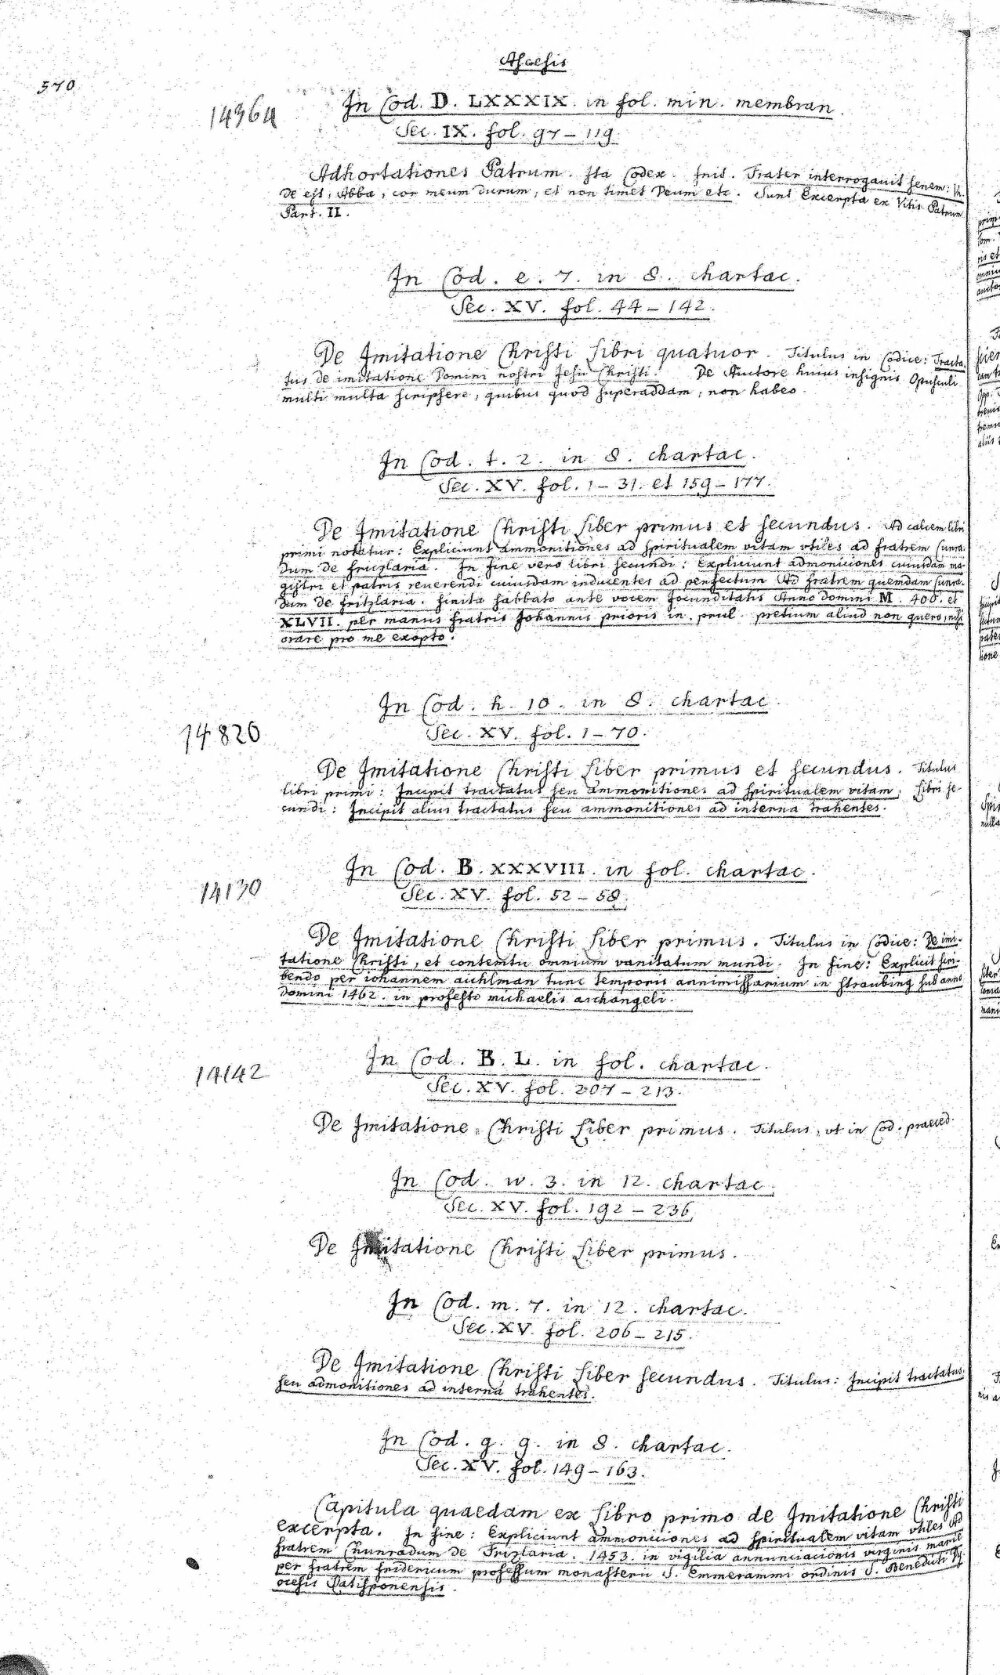 Ascesis
570
14364
In Cod. D. LXXXIX. in fol. min. membran
Sec. IX. fol. 97 – 119.
Adhortationes Patrum. Ita Codex. Init. Frater interrogauit senem: Vn-
de est, Abba, cor meum durum, et non timet Deum etc. Sunt Excerpta ex Vitis Patrum
Part. II.
In Cod. e. 7. in 8. chartac.
Sec. XV. fol. 44 – 142.
De Imitatione Christi Libri quatuor. Titulus in Codice: Tracta-
tus de imitatione Domini nostri Jesu Christi. De Auctore huius insignis Opusculi
multi multa scripsere, quibus quod superaddam, non habeo.
In Cod. f. 2. in 8. chartac.
Sec. XV. fol. 1 – 31. et 159 – 177.
De Imitatione Christi Liber primus et secundus. Ad calcem libri
primi notatur: Expliciunt ammonitiones ad spiritualem vitam vtiles ad fratrem Cunra-
dum de fruzlaria. In fine vero libri secundi: Expliciunt admoniciones cuiusdam ma-
gistri et patris reuerendi cuiusdam inducentes ad perfectum Ad fratrem quemdam Cunra-
dum de fritzlaria. finita sabbato ante vocem Jocunditatis Anno domini M. 400. et
XLVII. per manus fratris Johannis prioris in prul. pretium aliud non quero, nisi
orare pro me exopto.
14820
In Cod. h. 10. in 8. chartac.
Sec. XV. fol. 1 – 70.
De Imitatione Christi Liber primus et secundus. Titulus
libri primi: Incipit tractatus seu ammonitiones ad spiritualem vitam; Libri se-
cundi: Incipit alius tractatus seu ammonitiones ad interna trahentes.
14130
In Cod. B. XXXVIII. in fol. chartac.
Sec. XV. fol. 52 – 58.
De Imitatione Christi Liber primus. Titulus in Codice: De imi-
tatione Christi, et contemtu omnium vanitatum mundi. In fine: Explicit scri-
bendo per iohannem aichlman tunc temporis annimissarium in straubing sub anno
domini 1462. in profesto michaelis archangeli.
14142
In Cod. B. L. in fol. chartac.
Sec. XV. fol. 207 – 213.
De Imitatione Christi Liber primus. Titulus, vt in Cod. praeced.
In Cod. w. 3. in 12. chartac.
Sec. XV. fol. 192 – 236.
De Imitatione Christi Liber primus.
In Cod. m. 7. in 12. chartac.
Sec. XV. fol. 206 – 215.
De Imitatione Christi Liber secundus. Titulus: Incipit tractatus
seu admonitiones ad interna trahentes.
In Cod. g. 9. in 8. chartac.
Sec. XV. fol. 149 – 163.
Capitula quaedam ex Libro primo de Imitatione Christi
excerpta. In fine: Expliciunt ammoniciones ad spiritualem vitam vtiles Ad
fratrem Chunradum de Frizlaria. 1453. in vigilia annunciacionis virginis marie
per fratrem fridericum professum monasterii S. Emmerammi ordinis S. Benedicti Dy-
ocesis Ratisponensis.